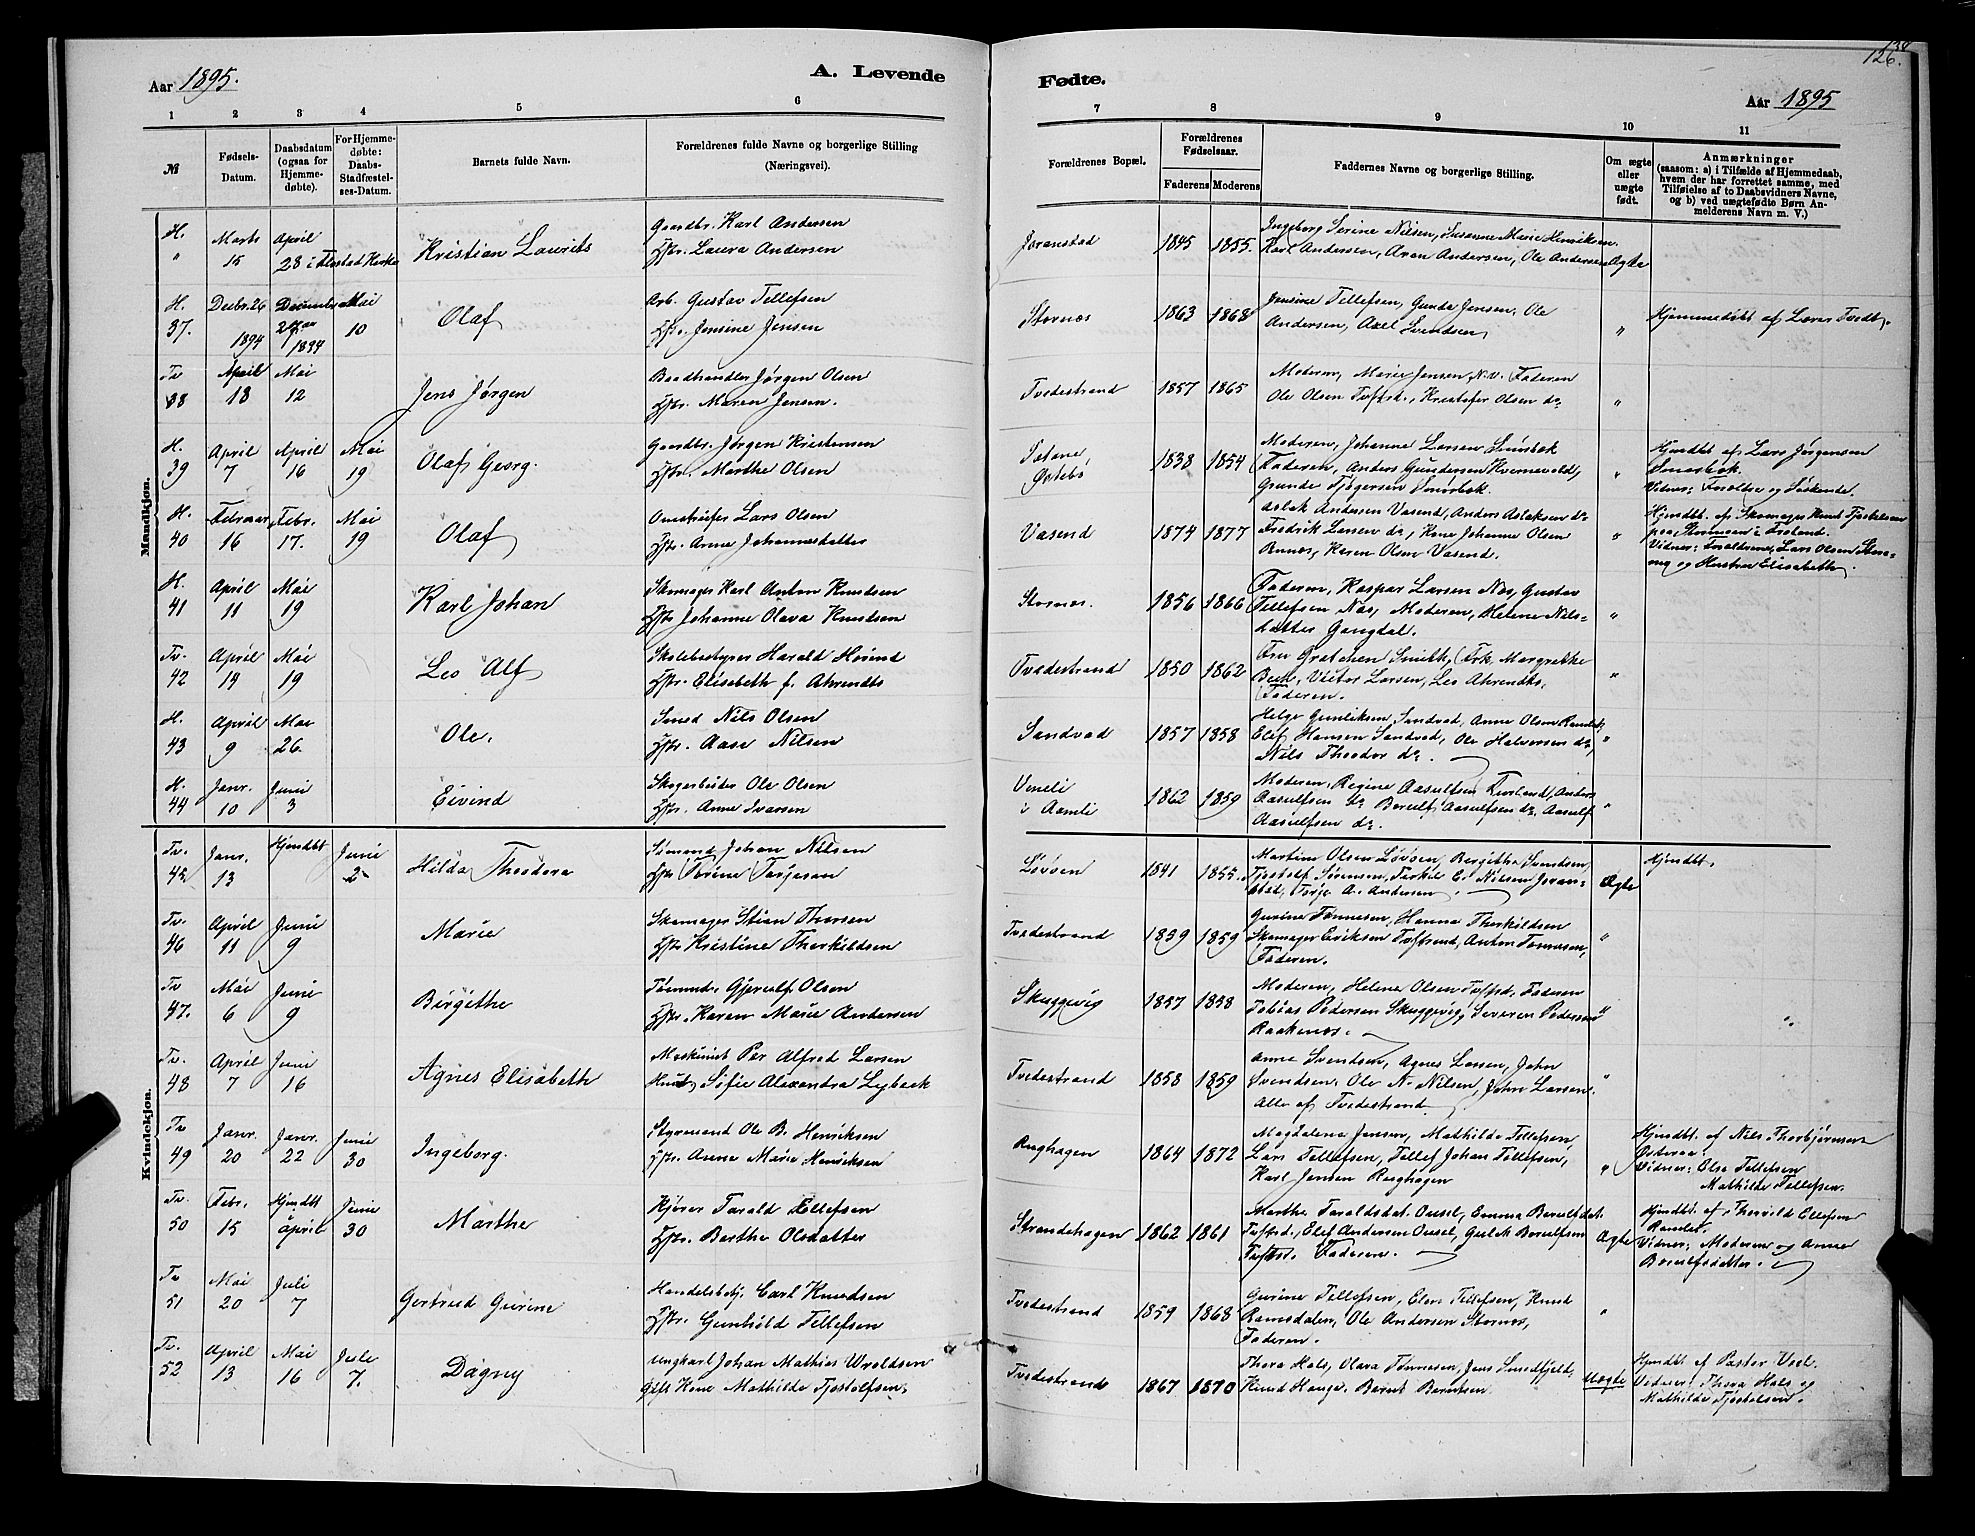 Aar 1895.
A. Levende
Fødte.
126.
Aar 1895
1 2 3 4 5 6 7 8 9 10 11
№
Fødsels-
Datum.
Daabsdatum
(ogsaa for
Hjemme-
døbte).
For Hjemme-
døbte:
Daabs-
Stadfæstel-
ses-Datum.
Barnets fulde Navn.
Forældrenes fulde Navne og borgerlige Stilling
(Næringsvei).
Forældrenes Bopæl.
Forældrenes
Fødselsaar.
Faderens Moderens
Faddernes Navne og borgerlige Stilling.
Om ægte
eller
uægte
født.
Anmærkninger
(saasom: a) i Tilfælde af Hjemmedaab,
hvem der har forrettet samme, med
Tilføielse af to Daabsvidners Navne,
og b) ved uægtefødte Børn An-
melderens Navn m. V.)
Mandkjøn.
H. Marts April Gaardbr. Karl Andersen
" 15 28 i Flostad Kirke Kristian Laurits Hstr. Laura Andersen
Joranstad 1845 1855.
Ingeborg Serine Nilsen, Susanne Marie Henriksen.
Karl Andersen, Aron Andersen, Ole Andersen Ægte
H. Decbr. 26 December Mai Arb. Gustav Tellefsen
37. 1894 1894 10 Olaf Hstr. Jensine Jensen
Stornes 1863 1868
Jensine Tellefsen, Gunda Jensen, Ole
Andersen, Axel Svendsen "
Hjemmedøbt af Lærer Tvedt.
Tv April Mai Baadhandler Jørgen Olsen
38 18 12 Jens Jørgen Hstr. Maren Jensen.
Tvedestrand 1857 1865
Moderen, Marie Jensen, N.V. Faderen
Ole Olsen Tvstrd., Kristofer Olsen do "
H. April April Mai Gaardbr. Jørgen Kristensen
39 7 16 19 Olaf Georg. Hstr. Marthe Olsen
Østebø 1838 1854
Moderen, Johanne Larsen
Faderen, Anders Gundersen Kvernevold,
"
Hjmdbt af Lars Jørgensen
Vidner: Forældre og Søskende.
H. Februar Febr. Mai Omstreifer Lars Olsen
40 16 17. 19 Olaf Hstr. Anne Johannesdatter
Vasend 1874 1877
Aslak Andersen Vasend, Anders Aslaksen do
Fredrik Larsen do, Kone Johanne Olsen
Karen Olsen Vasend. "
Hjmdbt. af Skomager Knut
Vidner: Forældrene, Lars Olsen
og Hustru Elisabeth.
H. April Mai Skomager Karl Anton Knudsen
41 11 19 Karl Johan Hstr Johanne Olava Knudsen
Stornes. 1856 1866
Faderen, Kaspar Larsen Næs, Gustav
Tellefsen Næs, Moderen, Helene Nils-
datter Gangdal. "
Tv. April Mai Skolebestyrer Harald Høind
42 19 19 Leo Alf Hstr. Elisabeth f. Ahrendts
Tvedestrand 1850 1862
Fru Gretchen Smith, Frk. Margrethe
Victor Larsen, Leo Ahrendts,
Faderen. "
H. April Mai Smed Nils Olsen
43 9 26. Ole. Hstr. Aase Nilsen
Sandvad 1857 1858
Helge Gunleiksen Sandvad, Anne Olsen
Elef Hansen Sandvad, Ole Halvorsen do,
Nils Theodor do. "
H. Janr. Juni Skogarbeider Ole Olsen
44 10 3 Eivind Hstr. Anne Ivarsen
i Aamli 1862 1859
Moderen, Regine Aasulfsen, Anders
Aasulfsen do Borulf Aasulfsen do, Aasulf
Aasulfsen do. "
Kvindekjøn.
Tv. Janr. Hjmdbt Juni Sømand Johan Nilsen
45 13 2 Hilda Theodora Hstr Torine Torjesen
Løvøen 1841 1855.
Martine Olsen Løvøen, Bergithe Svendsen,
Tjostolf Sørensen, Torkil E. Nilsen Joran-
stad, Torje A. Andersen Ægte
Hjmdbt.
Tv. April Juni Skomager Stian Thorsen
46 11 9 Marie Hstr Kristine Therkildsen
Tvedestrand 1839 1859
Gurine Tønnesen, Hanna Therkildsen
Skomager Eriksen Tvstrand, Anton Tønnesen,
Faderen. "
Tv Mai Juni Tømmerm. Gjerulf Olsen
47. 6 9 Birgithe Hstr. Karen Marie Andersen
Skuggevig 1857 1858
Moderen, Helene Olsen Tvstrd. Faderen
Tobias Pedersen Skuggevig, Severen Pedersen
Raakenes. "
Tv. April Juni Maskinist Per Alfred Larsen
48 7 16 Agnes Elisabeth Hust. Sofie Alexandra Lybeck
Tvedestrand 1858 1859
Anne Svendsen, Agnes Larsen, John
Svendsen, Ole N. Nilsen, John Larsen.
Alle af Tvedestrand "
Tv Janr. Janr. Juni Styrmand Ole B. Henriksen
49 20 22 30 Ingeborg. Hstr. Anne Marie Henriksen
Rughagen 1864 1872
Magdalena Jensen, Mathilde Tellefsen,
Lars Tellefsen, Tellef Johan Tellefsen,
Karl Jensen Rughagen "
Hjmdbt. af Nils Thorbjørnsen
Østeraa.
Vidner: Else Tellefsen
Mathilde Tellefsen.
Tv. Febr. Hjmdbt Juni Kjører Torald Ellefsen
50 15 April 30 Marthe Hstr. Berthe Olsdatter
Strandehagen 1862 1861
Marthe Taraldsdat. Oussel, Emma Borulfsdat.
Tvstrd., Elef Andersen Oussel, Geslek Borulfsen
Tvstrd. Faderen. Ægte
Hjmdbt. af Thorvild Ellefsen
Ramlet.
Vidner: Moderen og Anne
Borulfsdatter.
Tv Mai Juli Handelsbetj. Carl Knudsen
51 20 7 Gertrud Gurine Hstr. Gunhild Tellefsen
Tvedestrand 1859 1868
Gurine Tellefsen, Elen Tellefsen, Knud
Ramsdalen, Ole Andersen Stornes,
Faderen. "
Tv. April Mai Juli Ungkarl Johan Mathias Wroldsen
52 13 16 7. Dagny Gift Kone Mathilde Tjostolfsen.
Tvedestrand 1867 1870
Thora Hals, Olava Tønnesen, Jens Sundfjeld,
Knud Hauge, Bernt Berntsen. Uægte
Hjmdbt af Pastor Veel.
Vidner: Thora Hals og
Mathilde Tjostolsen.